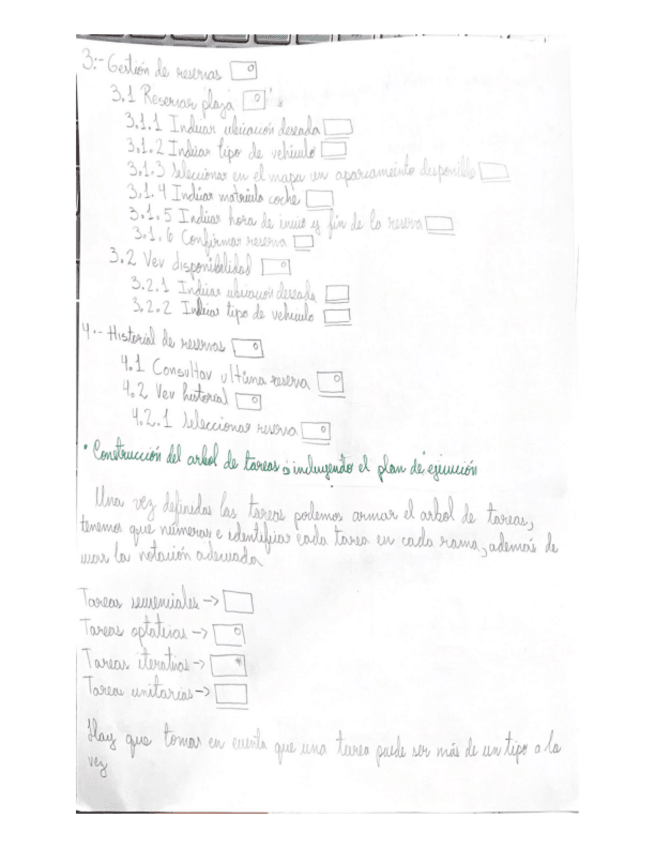 3.- Gestión de reservas
3.1 Reservar plaza
3.1.1 Indicar ubicación deseada
3.1.2 Indicar tipo de vehiculo
3.1.3 Seleccionar en el mapa un aparcamiento disponible
3.1.4 Indicar matricula coche
3.1.5 Indicar hora de inicio y fin de la reserva
3.1.6 Confirmar reserva
3.2 Ver disponibilidad
3.2.1 Indicar ubicacion deseada
3.2.2 Indicar tipo de vehiculo
4.- Historial de reservas
4.1 Consultar ultima reserva
4.2 Ver historial
4.2.1 Seleccionar reserva
• Construcción del arbol de tareas incluyendo el plan de ejecución
Una vez definidas las tareas podemos armar el arbol de tareas,
tenemos que numerar e identificar cada tarea en cada rama, además de
usar la notación adecuada
Tareas secuenciales ->
Tareas optativas ->
Tareas iterativas ->
Tareas unitarias ->
Hay que tomar en cuenta que una tarea puede ser más de un tipo a la
vez